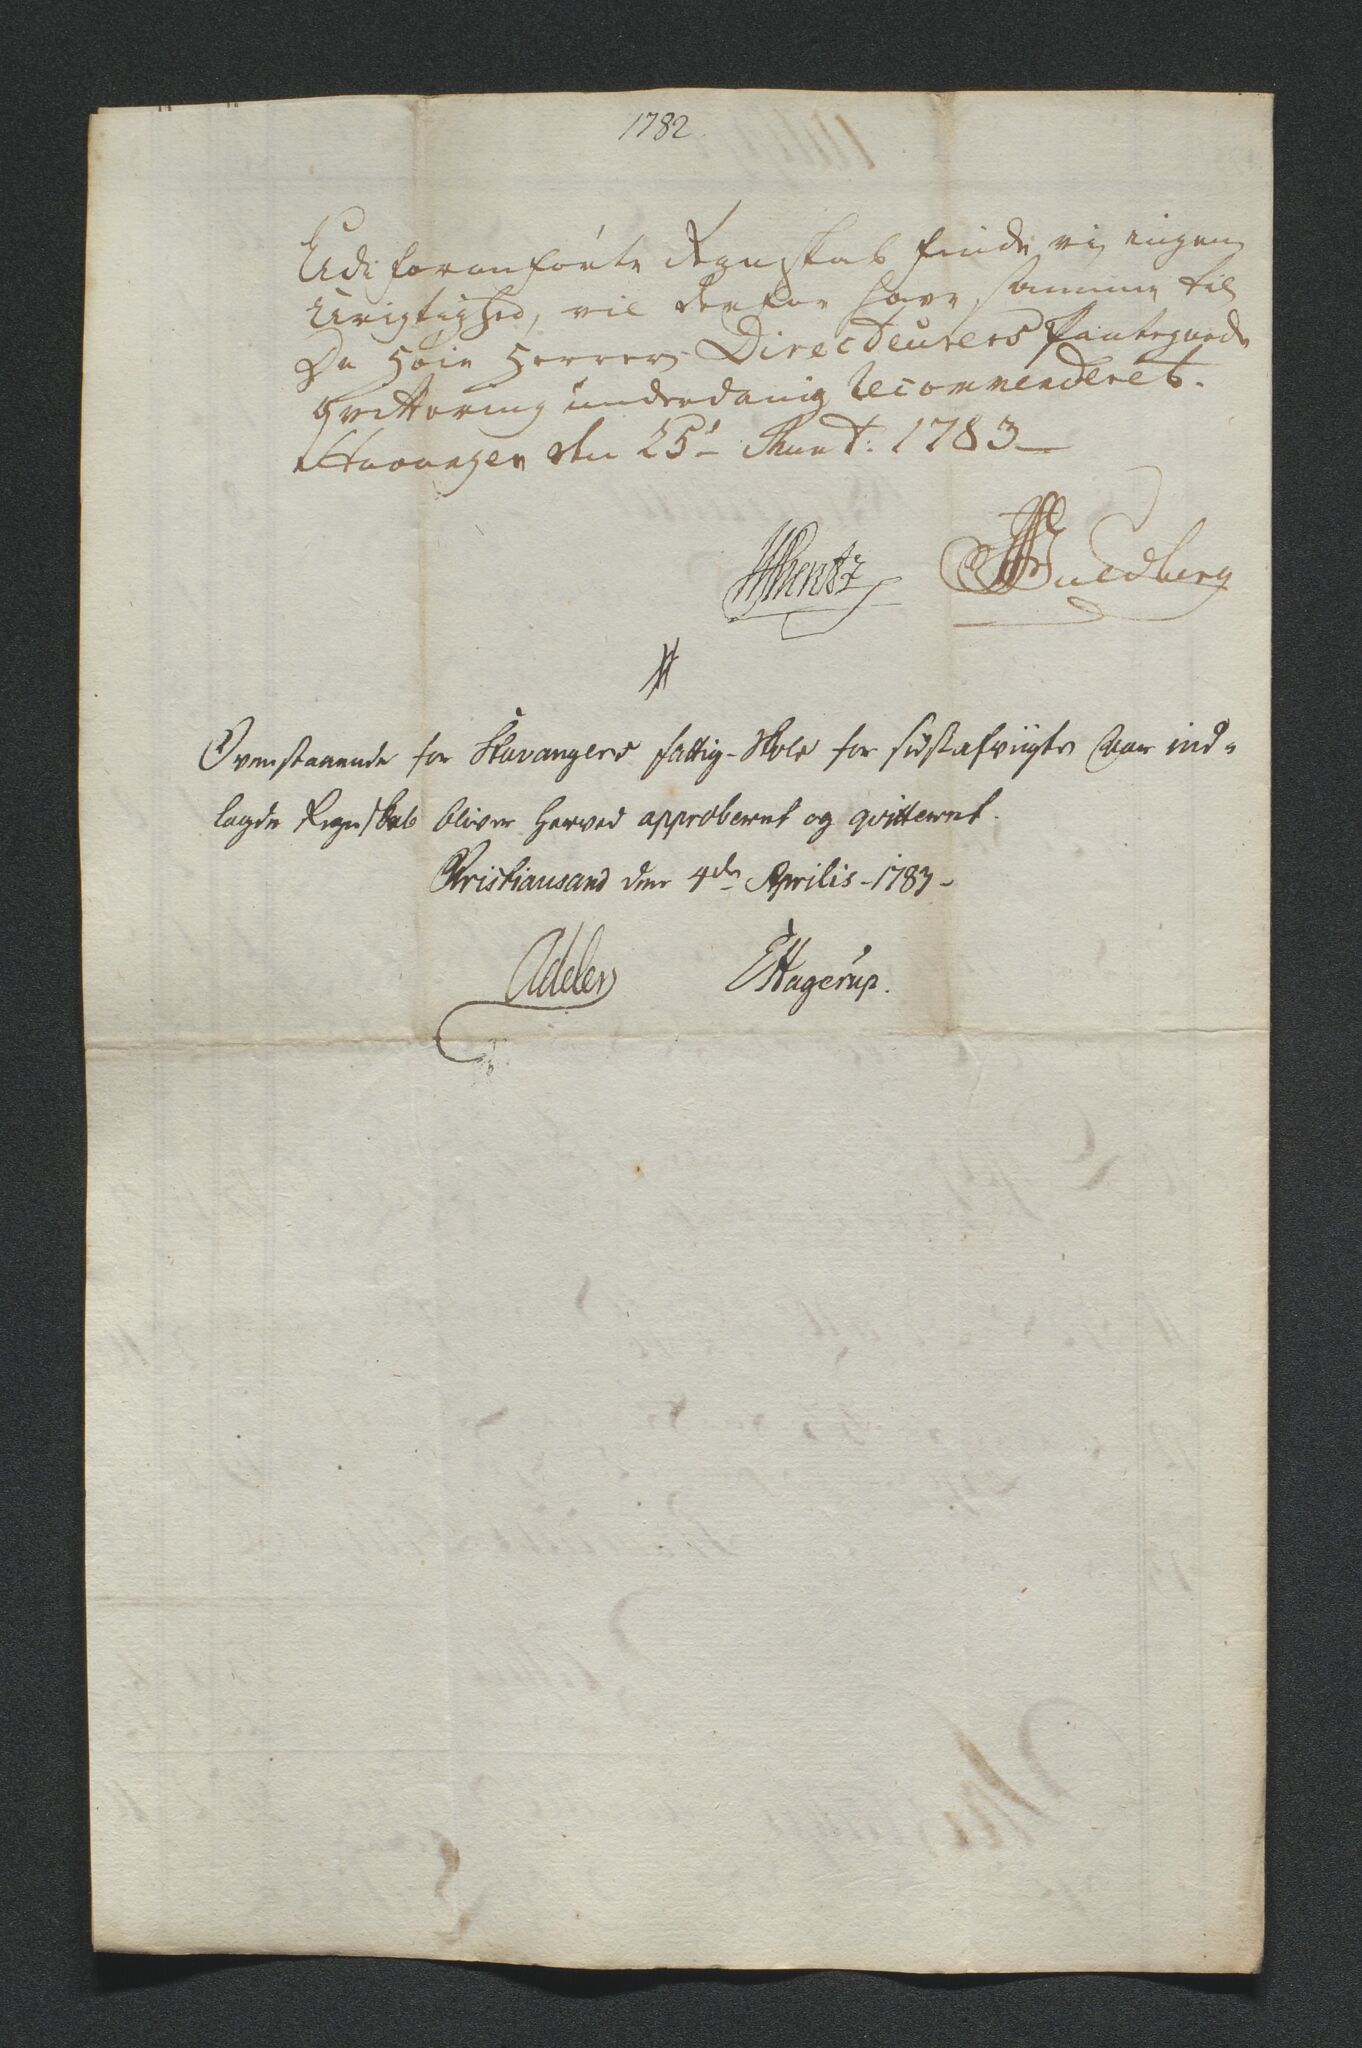 1782.
Udi foranførte Regnskab finde vi ingen
Urigtighed, vil derfor have samme til
De Høie Herrer Directeurers Paategnede
Qvittering underdanig Recommenderet.
Stavanger den 25de Mart: 1783
Ovenstaaende for Stavangers fattig-Skole for sidstafvigte Aar ind-
lagde Regnskab bliver herved approberet og qvitteret.
Christiansand den 4de Aprilis - 1783 -
Adeler EHagerup.